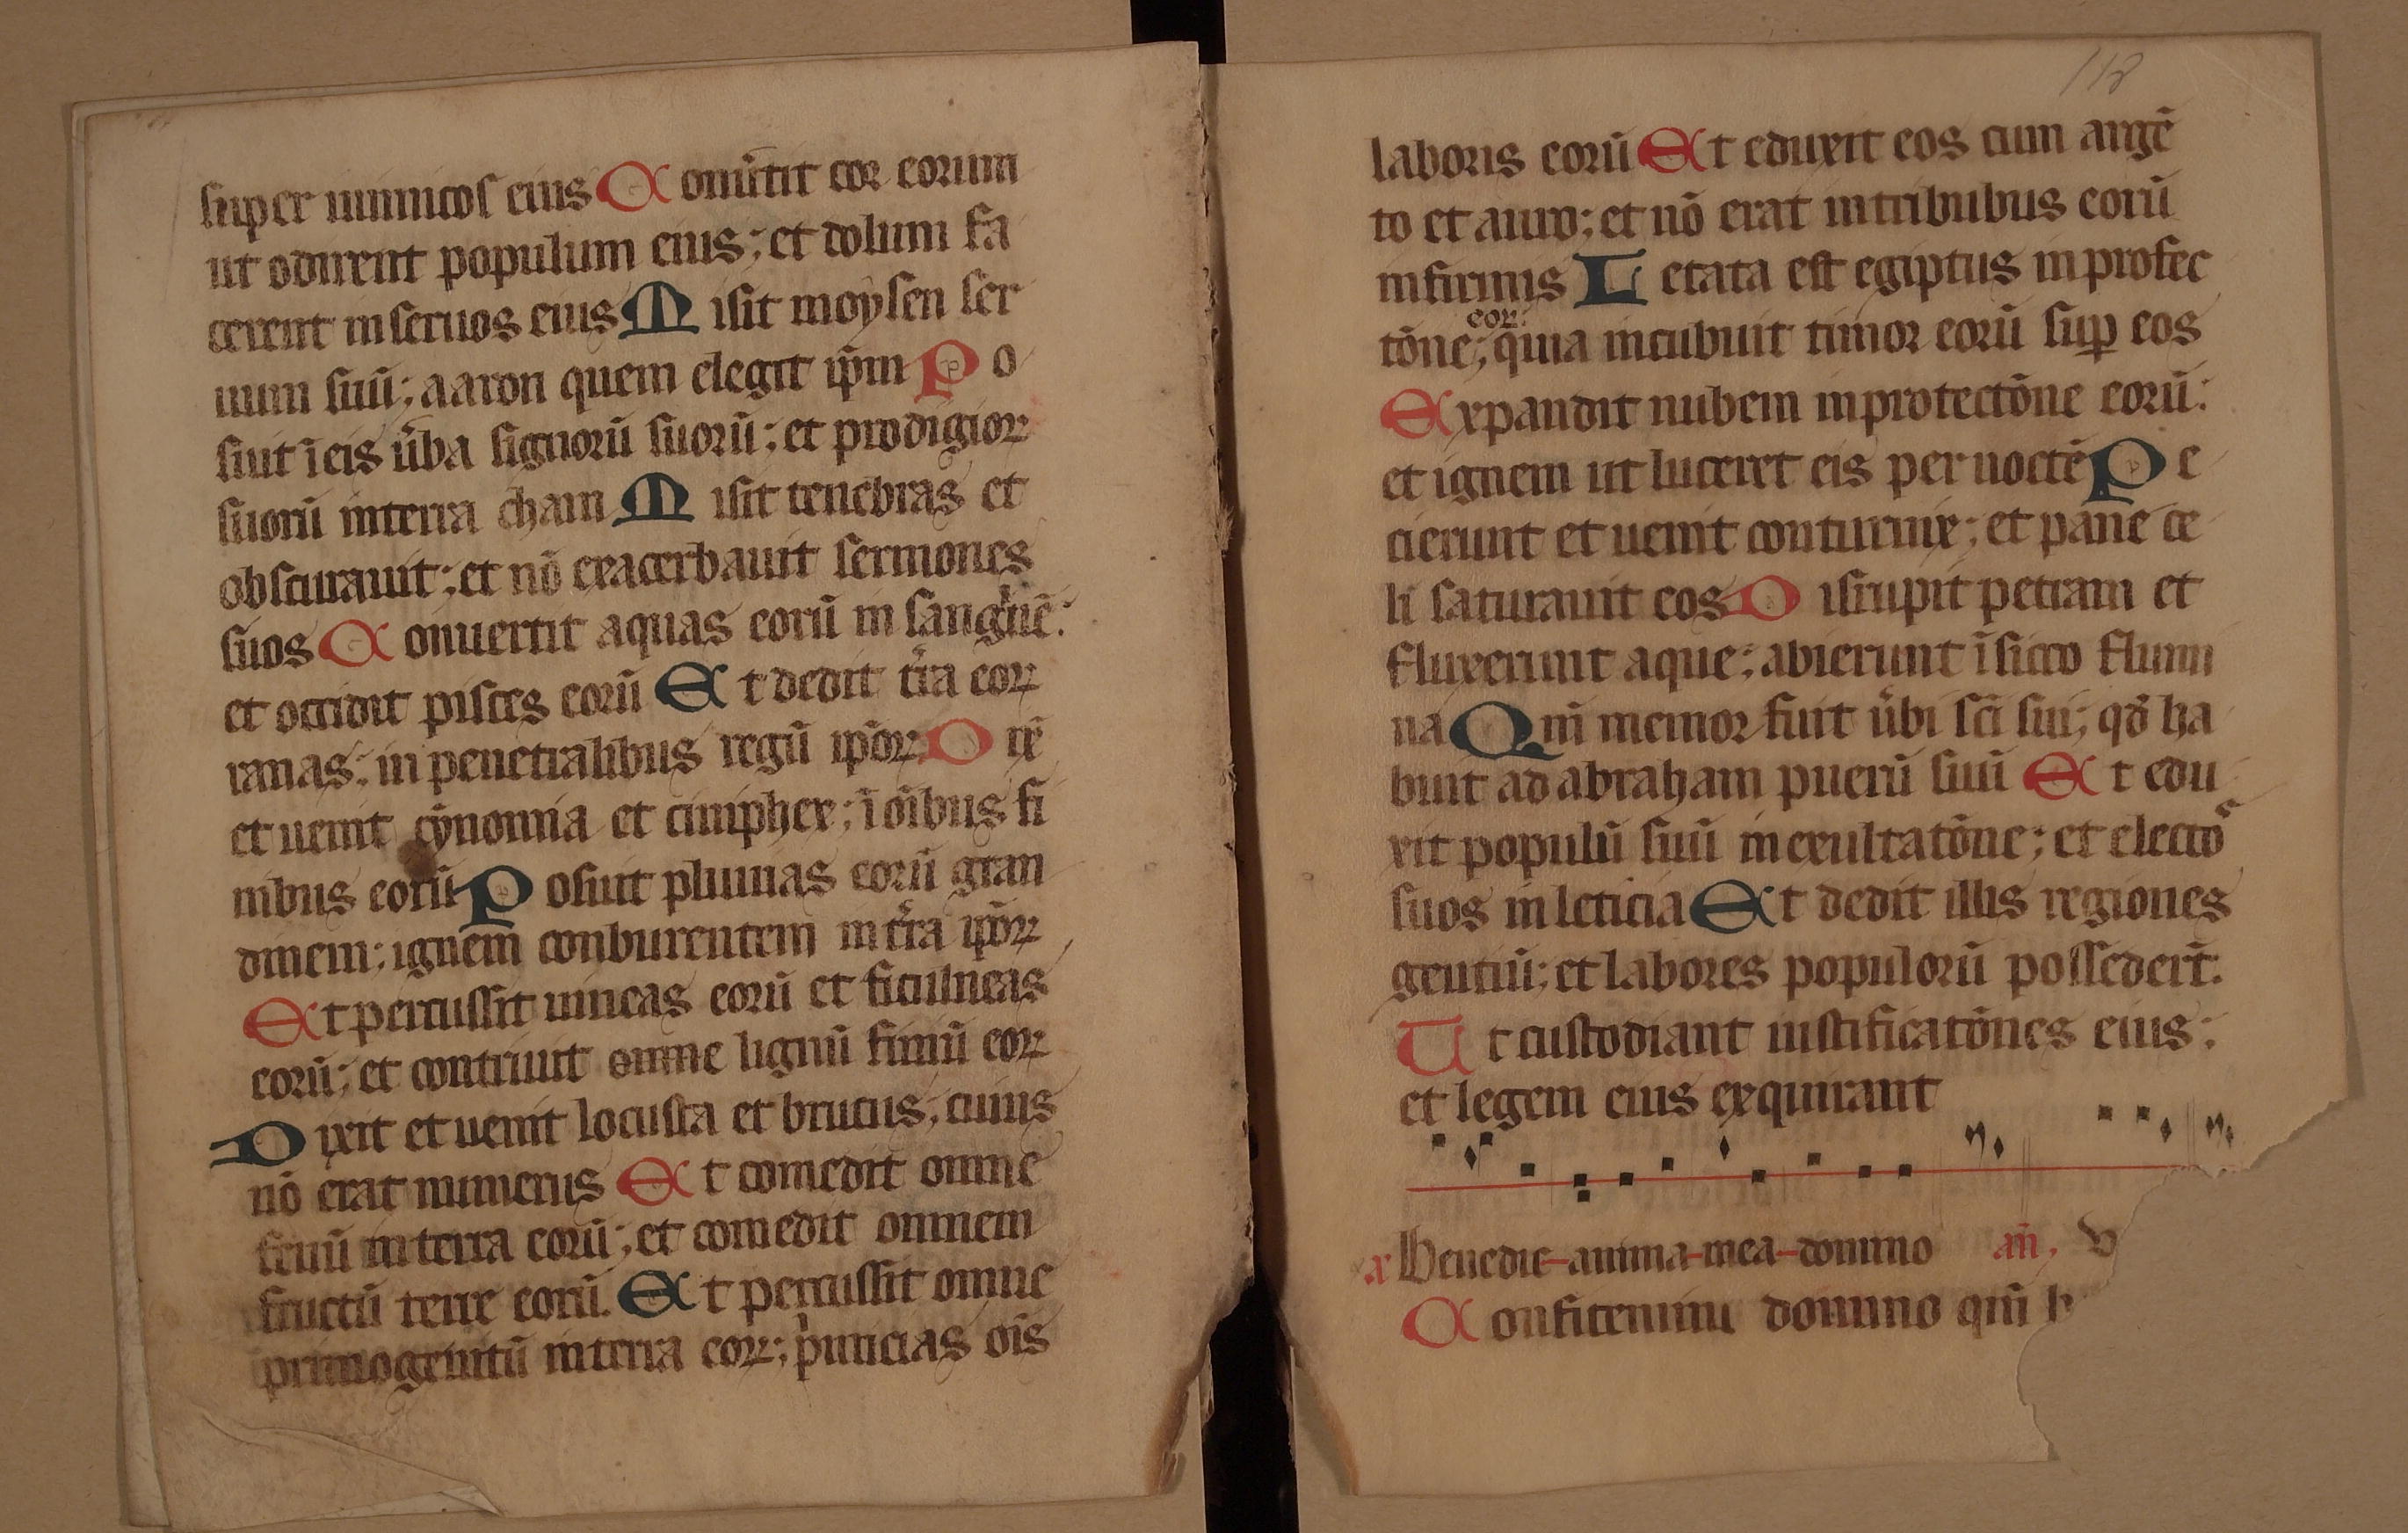 super inimicos eius Conũtit cor eorum
ut odirent populum eius; et dolum fa
cerent in seruos eius Misit moysen ser
uum suũ; aaron quem elegit ip̃m Po
suit ĩ eis ũba signorũ suorũ; et prodigioꝝ
suorũ in terra cham Misit tenebras et
obscurauit; et nõ exacerbauit sermones
suos Conuertit aquas eorũ in sanguinẽ:
et occidit pisces eorũ Et dedit tr̃a eoꝝ
ranas; in penetralibus regũ ip̃oꝝ Dix̃
et uenit cÿnomia et ciniphex; ĩ oĩbus fi
nibus eorũ Posuit pluuias eorũ gran
dinem; ignem conburentem in tr̃a ip̃oꝝ
Et percussit uineas eorũ et ficulneas
eorũ; et contriuit omne lignũ finiũ eoꝝ
Dixit et uenit locusta et brucus; cuius
nõ erat numerus Et comedit omne
fenũ in terra eorũ; et comedit omnem
fructũ terre eorũ. Et percussit omne
primogenitũ in terra eoꝝ; p̃micias oĩs
118
laboris eorũ Et eduxit eos cum argẽ
to et auro; et nõ erat in tribubus eorũ
infirmis Letata est egiptus in profec
eoꝝ:
tõne; quia incubuit timor eorũ suꝑ eos
Expandit nubem in protectõne eorũ:
et ignem ut luceret eis per noctẽ Pe
cierunt et uenit conturnix; et pane ce
li saturauit eos Disrupit petram et
fluxerunt aque; abierunt ĩ sicco flumi
na Qm̃ memor fuit ũbi sc̃i sui; qď ha
buit ad abraham puerũ suũ Et edu
xit populũ suũ in exultatõne; et electoˢ
suos in leticia Et dedit illis regiones
gentiũ; et labores populorũ possedert̃.
Ut custodiant iustificatõnes eius;
et legem eius exquirant
Benedic anima mea domino añ,
Confitemini domino qm̃ b